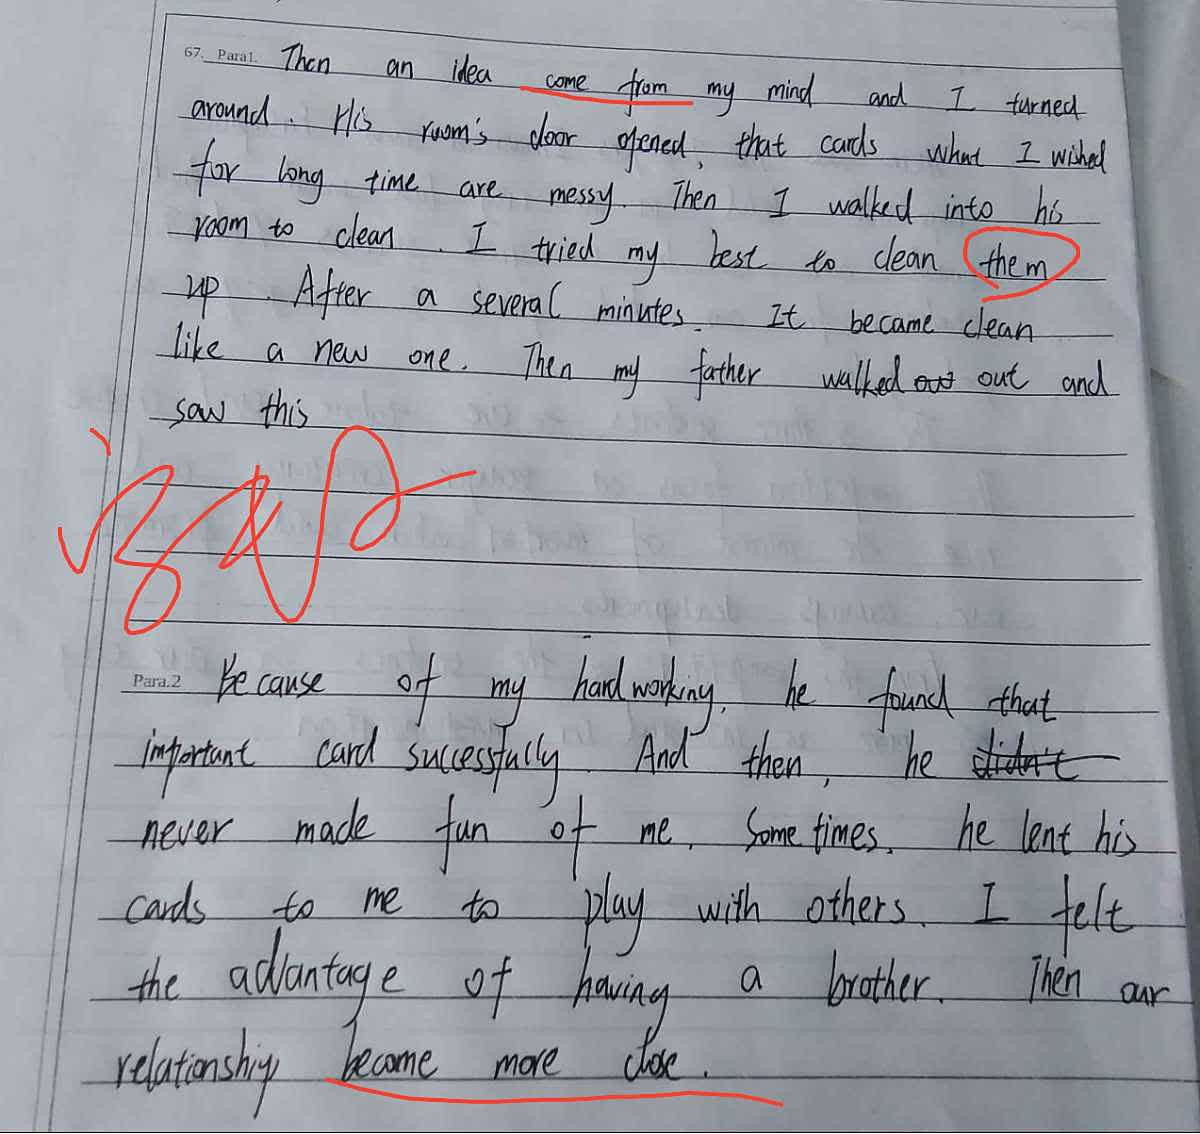 67. Para1. Then an idea come from my mind and I turned
around. His room's door opened, that cards what I wished
for long time are messy. Then I walked into his
room to clean. I tried my best to clean them
up. After a several minutes. It became clean
like a new one. Then my father walked out out and
saw this
Para.2 Because of my hardworking, he found that
important card successfully. And then, he didn't
never made fun of me. Sometimes. he lent his
cards to me to play with others. I felt
the advantage of having a brother. Then our
relationship become more close.